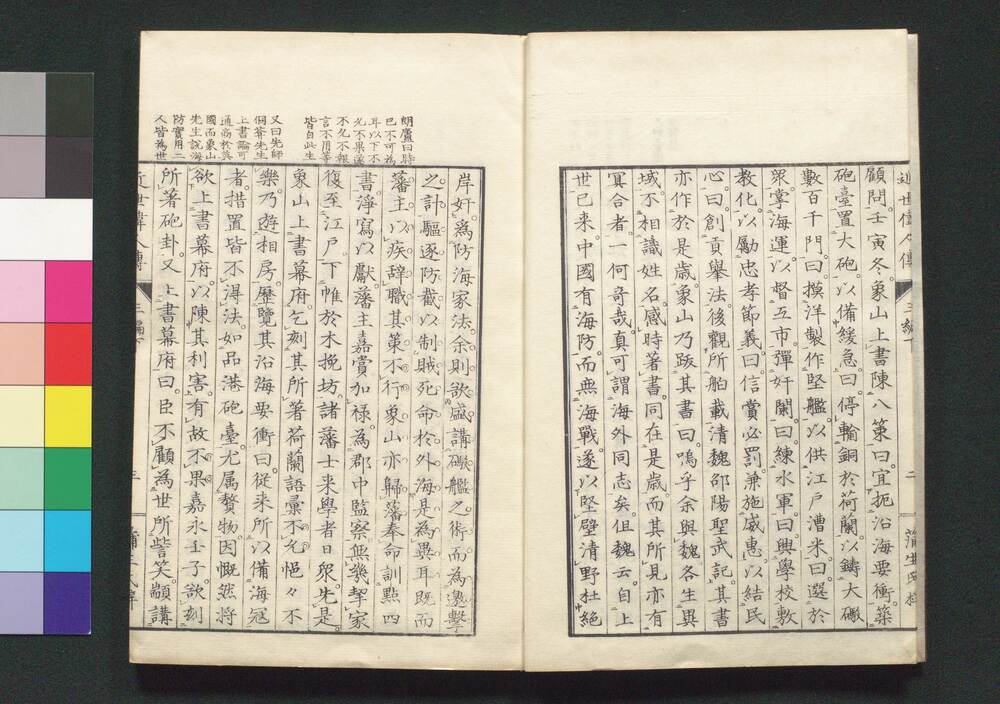 近世偉人傳 三編下 二 蒲生氏梓
顧問壬寅冬象山上書陳八策曰宜扼沿海要衝築
砲臺置大砲以備緩急曰停輸銅於荷蘭以鑄大礮
數百千門曰摸洋製作堅艦以供江戸漕米曰選於
衆掌海運以督互市彈奸闌曰練水軍曰興學校敷
教化以勵忠孝節義曰信賞必罰兼施威惠以結民
心曰創貢擧法後觀所舶載清魏邵陽聖武記其書
亦作於是歲象山乃跋其書曰嗚乎余與魏各生異
域不相識姓名感時著書同在是歲而其所見亦有
冥合者一何奇哉真可謂海外同志矣但魏云自上
世已来中國有海防而無海戰遂以堅壁清野杜絶
岸奸為防海家法余則欲盛講礮艦之術而為邀擊
之計驅逐防截以制賊死命於外海是為異耳既而
藩主以疾辞職其策不行象山亦歸藩奉命訓點四
書淨寫以獻藩主嘉賞加禄為郡中監察無幾挈家
復至江戸下帷於木挽坊諸藩士来學者日衆先是
象山上書幕府乞刻其所著荷蘭語彙不允悒々不
樂乃遊相房歷覽其沿海要衝曰従来所以備海冦
者措置皆不得法如品港砲臺尤属贅物因慨然將
欲上書幕府以陳其利害有故不果嘉永壬子欲刻
所著砲卦又上書幕府曰臣不顧為世所訾笑顓講
朗廬曰時
已不可為
耳以下不
允不果遂
不允不報
言不用等
皆自此生
又曰先師
侗菴先生
上書論可
通商於英
國而象山
先生説海
防實用二
人皆為世
近世偉人傳 三編下 三 蒲生氏梓